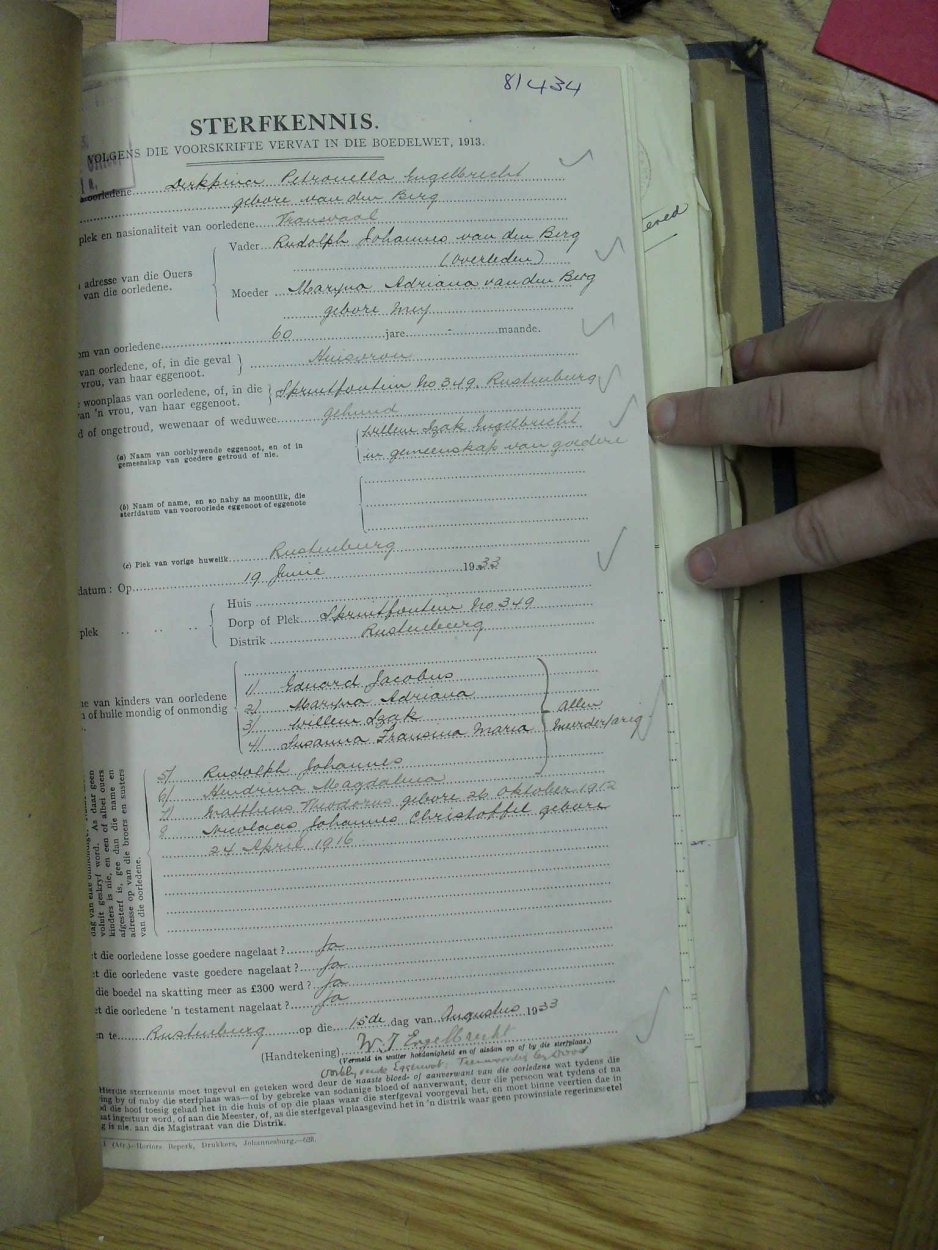 81434
STERFKENNIS.
VOLGENS DIE VOORSKRIFTE VERVAT IN DIE BOEDELWET, 1913.
oorledene Dirkpina Petronella Engelbrecht
gebore van den Berg
plek en nasionaliteit van oorledene Transvaal
Vader Rudolph Johannes van den Berg
(Overleden)
adresse van die Ouers
van die oorledene.
Moeder Maryna Adriana van den Berg
gebore Mey
om van oorledene 60 jare - maande.
van oorledene, of, in die geval
vrou, van haar eggenoot. } Huisvrou
woonplaas van oorledene, of, in die
van 'n vrou, van haar eggenoot. { Spruitfontein No 349. Rustenburg
d of ongetroud, wewenaar of weduwee gehuud
(a) Naam van oorblywende eggenoot, en of in
gemeenskap van goedere getroud of nie.
Willem Izak Engelbrecht
in gemeenskap van goedere
(b) Naam of name, en so naby as moontlik, die
sterfdatum van vooroorlede eggenoot of eggenote
(c) Plek van vorige huwelik Rustenburg
datum : Op 19 Junie 1933
Huis
plek
Dorp of Plek Spruitfontein No 349
Distrik Rustenburg
ne van kinders van oorledene
n of hulle mondig of onmondig
1/ Eduard Jacobus
2/ Maryna Adriana
3/ Willem Izak
4/ Susanna Fransina Maria
Allen
meerderjarig
5/ Rudolph Johannes
6/ Hendrina Magdalena
7/ Mattheus Theodorus gebore 26 Oktober 1912
8 Nicolaas Johannes Christoffel gebore
24 April 1916
voluit geskryf word. As daar geen
kinders is nie, en een of albei ouers
afgesterf is, gee dan die name en
adresse op van die broers en susters
van die oorledene.
t die oorledene losse goedere nagelaat ? Ja
t die oorledene vaste goedere nagelaat ? Ja
die boedel na skatting meer as £300 werd ? Ja
t die oorledene 'n testament nagelaat ? Ja
n te Rustenburg op die 15de dag van Augustus 1933
(Handtekening) W. J Engelbrecht
(Vermeld in watter hoedanigheid en of aldan op of by die sterfplaas.)
Hierdie sterfkennis moet ingevul en geteken word deur die naaste bloed- of aanverwant van die oorledene wat tydens die
ing by of naby die sterfplaas was—of by gebreke van sodanige bloed of aanverwant, deur die persoon wat tydens of na
d die hoof toesig gehad het in die huis of op die plaas waar die sterfgeval voorgeval het, en moet binne veertien dae in
at ingestuur word, of aan die Meester, of, as die sterfgeval plaasgevind het in 'n distrik waar geen prowinsiale regeringsetel
g is nie, aan die Magistraat van die Distrik.
(Afr.)—Hortors Beperk, Drukkers, Johannesburg.—